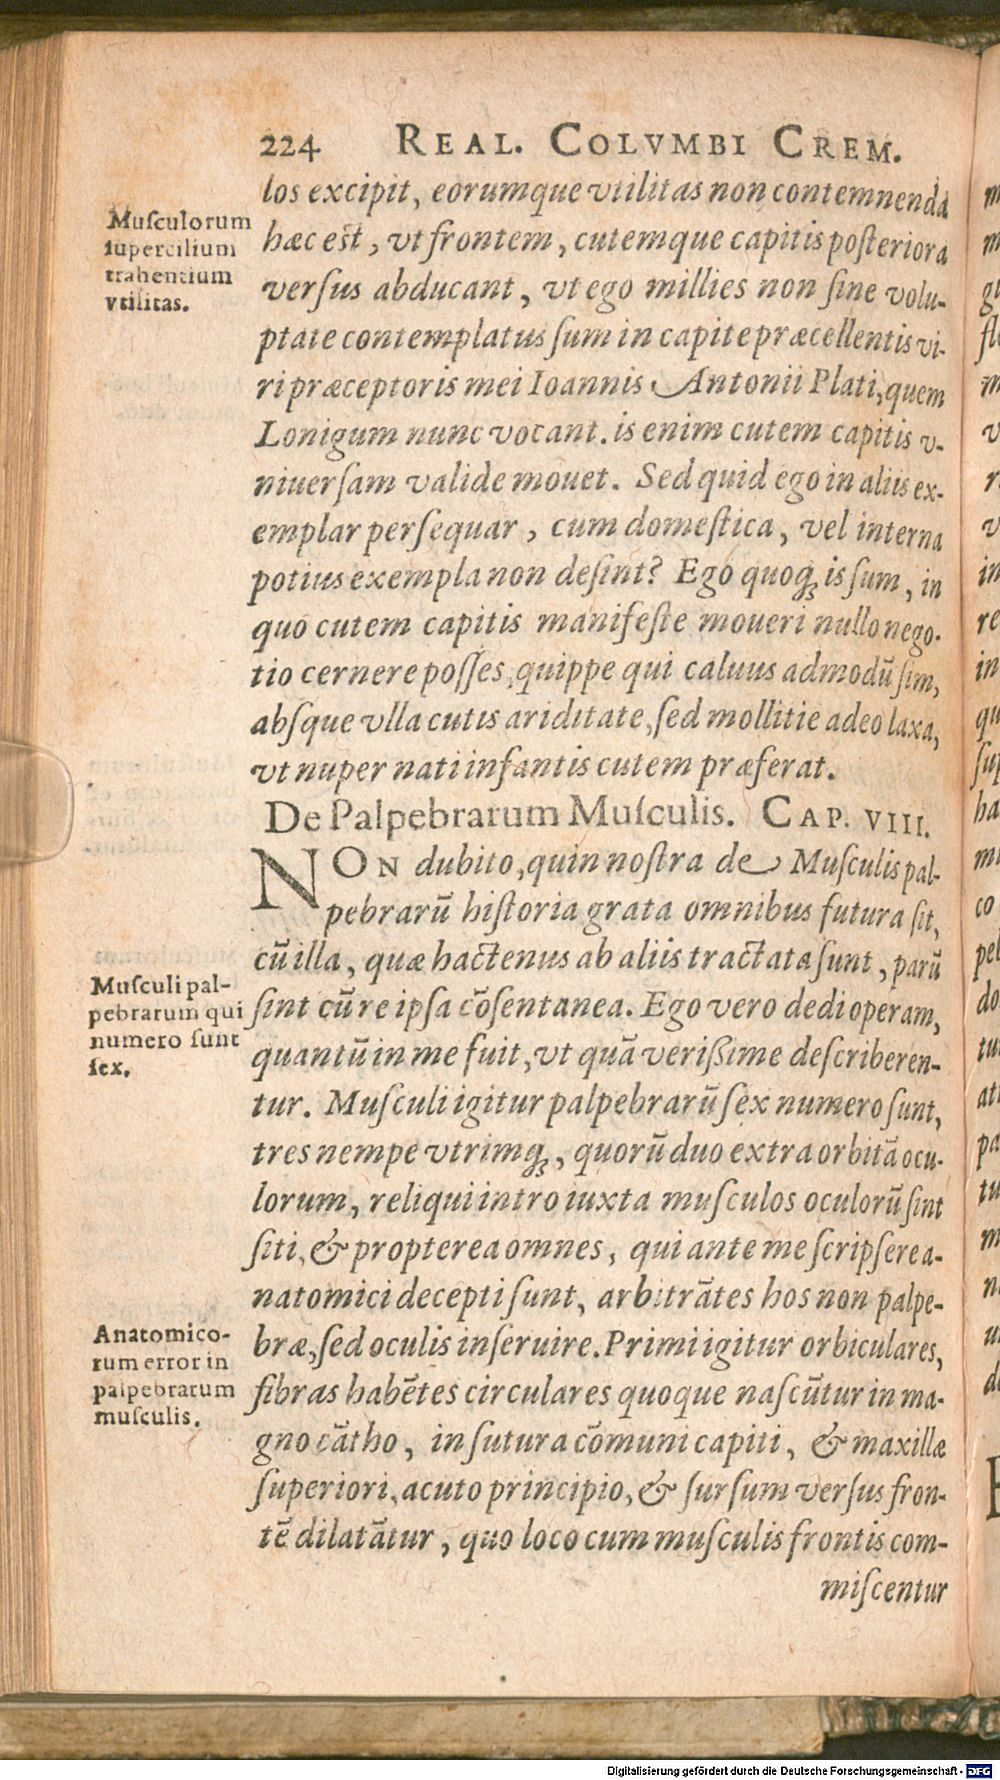 224 REAL. COLVMBI CREM.
los excipit, eorumque vtilitas non contemnenda
hæc est, vt frontem, cutemque capitis posteriora
versus abducant, vt ego millies non sine volu-
ptate contemplatus sum in capite præcellentis vi-
ri præceptoris mei Ioannis Antonii Plati, quem
Lonigum nunc vocant. is enim cutem capitis v-
niuersam valide mouet. Sed quid ego in aliis ex-
emplar persequar, cum domestica, vel interna
potius exempla non desint? Ego quoq; is sum, in
quo cutem capitis manifeste moueri nullo nego-
tio cernere posses, quippe qui caluus admodũ sim,
absque vlla cutis ariditate, sed mollitie adeo laxa,
vt nuper nati infantis cutem præferat.
Musculorum
supercilium
trahentium
vtilitas.
De Palpebrarum Musculis. CAP. VIII.
NON dubito, quin nostra de Musculis pal-
pebrarũ historia grata omnibus futura sit,
cũ illa, quæ hactenus ab aliis tractata sunt, parũ
sint cũ re ipsa cõsentanea. Ego vero dedi operam,
quantũ in me fuit, vt quã verißime describeren-
tur. Musculi igitur palpebrarũ sex numero sunt,
tres nempe vtrimq;, quorũ duo extra orbitã ocu-
lorum, reliqui intro iuxta musculos oculorũ sint
siti, & propterea omnes, qui ante me scripsere a-
natomici decepti sunt, arbitrãtes hos non palpe-
bræ, sed oculis inseruire. Primi igitur orbiculares,
fibras habẽtes circulares quoque nascũtur in ma-
gno cãtho, in sutura cõmuni capiti, & maxillæ
superiori, acuto principio, & sursum versus fron-
tẽ dilatãtur, quo loco cum musculis frontis com-
miscentur
Musculi pal-
pebrarum qui
numero sunt
sex.
Anatomico-
rum error in
palpebrarum
musculis.
Digitalisierung gefördert durch die Deutsche Forschungsgemeinschaft - DFG